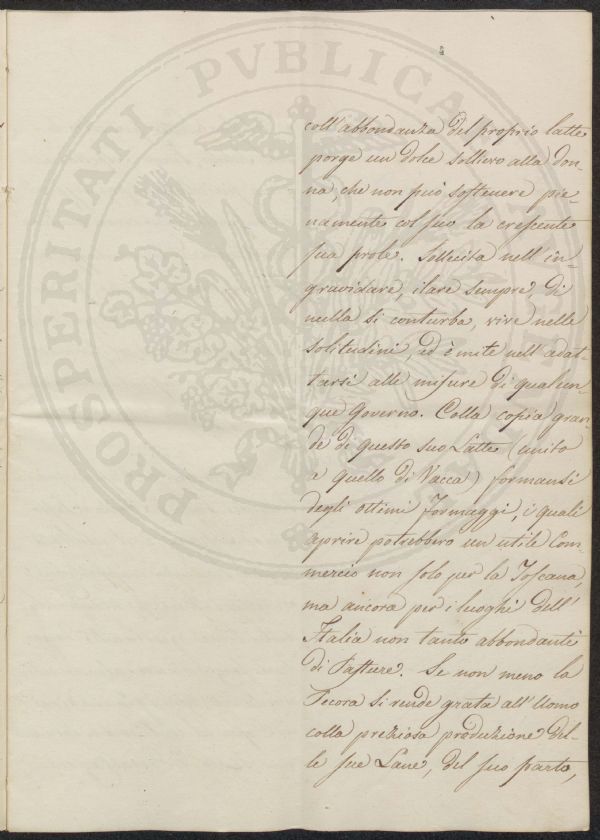 PROSPERITATI PVBLICAE
coll'abbondanza del proprio latte
porge un dolce sollievo alla don-
na, che non può sostenere pie-
namente col suo la crescente
sua prole. Sollecita nell'in-
gravidare, ilare sempre, di
nulla si conturba, vive nelle
solitudini, ed è mite nell'adat-
tarsi alle misure di qualun-
que Governo. Colla copia gran
de di questo suo Latte (unito
a quello di Vacca) formansi
degli ottimi formaggi, i quali
aprire potrebbero un utile Com-
mercio non solo per la Toscana,
ma ancora per i luoghi dell'
Italia non tanto abbondanti
di Pasture. Se non meno la
Pecora si rende grata all'Uomo
colla preziosa produzione del-
le sue Lane, del suo parto,